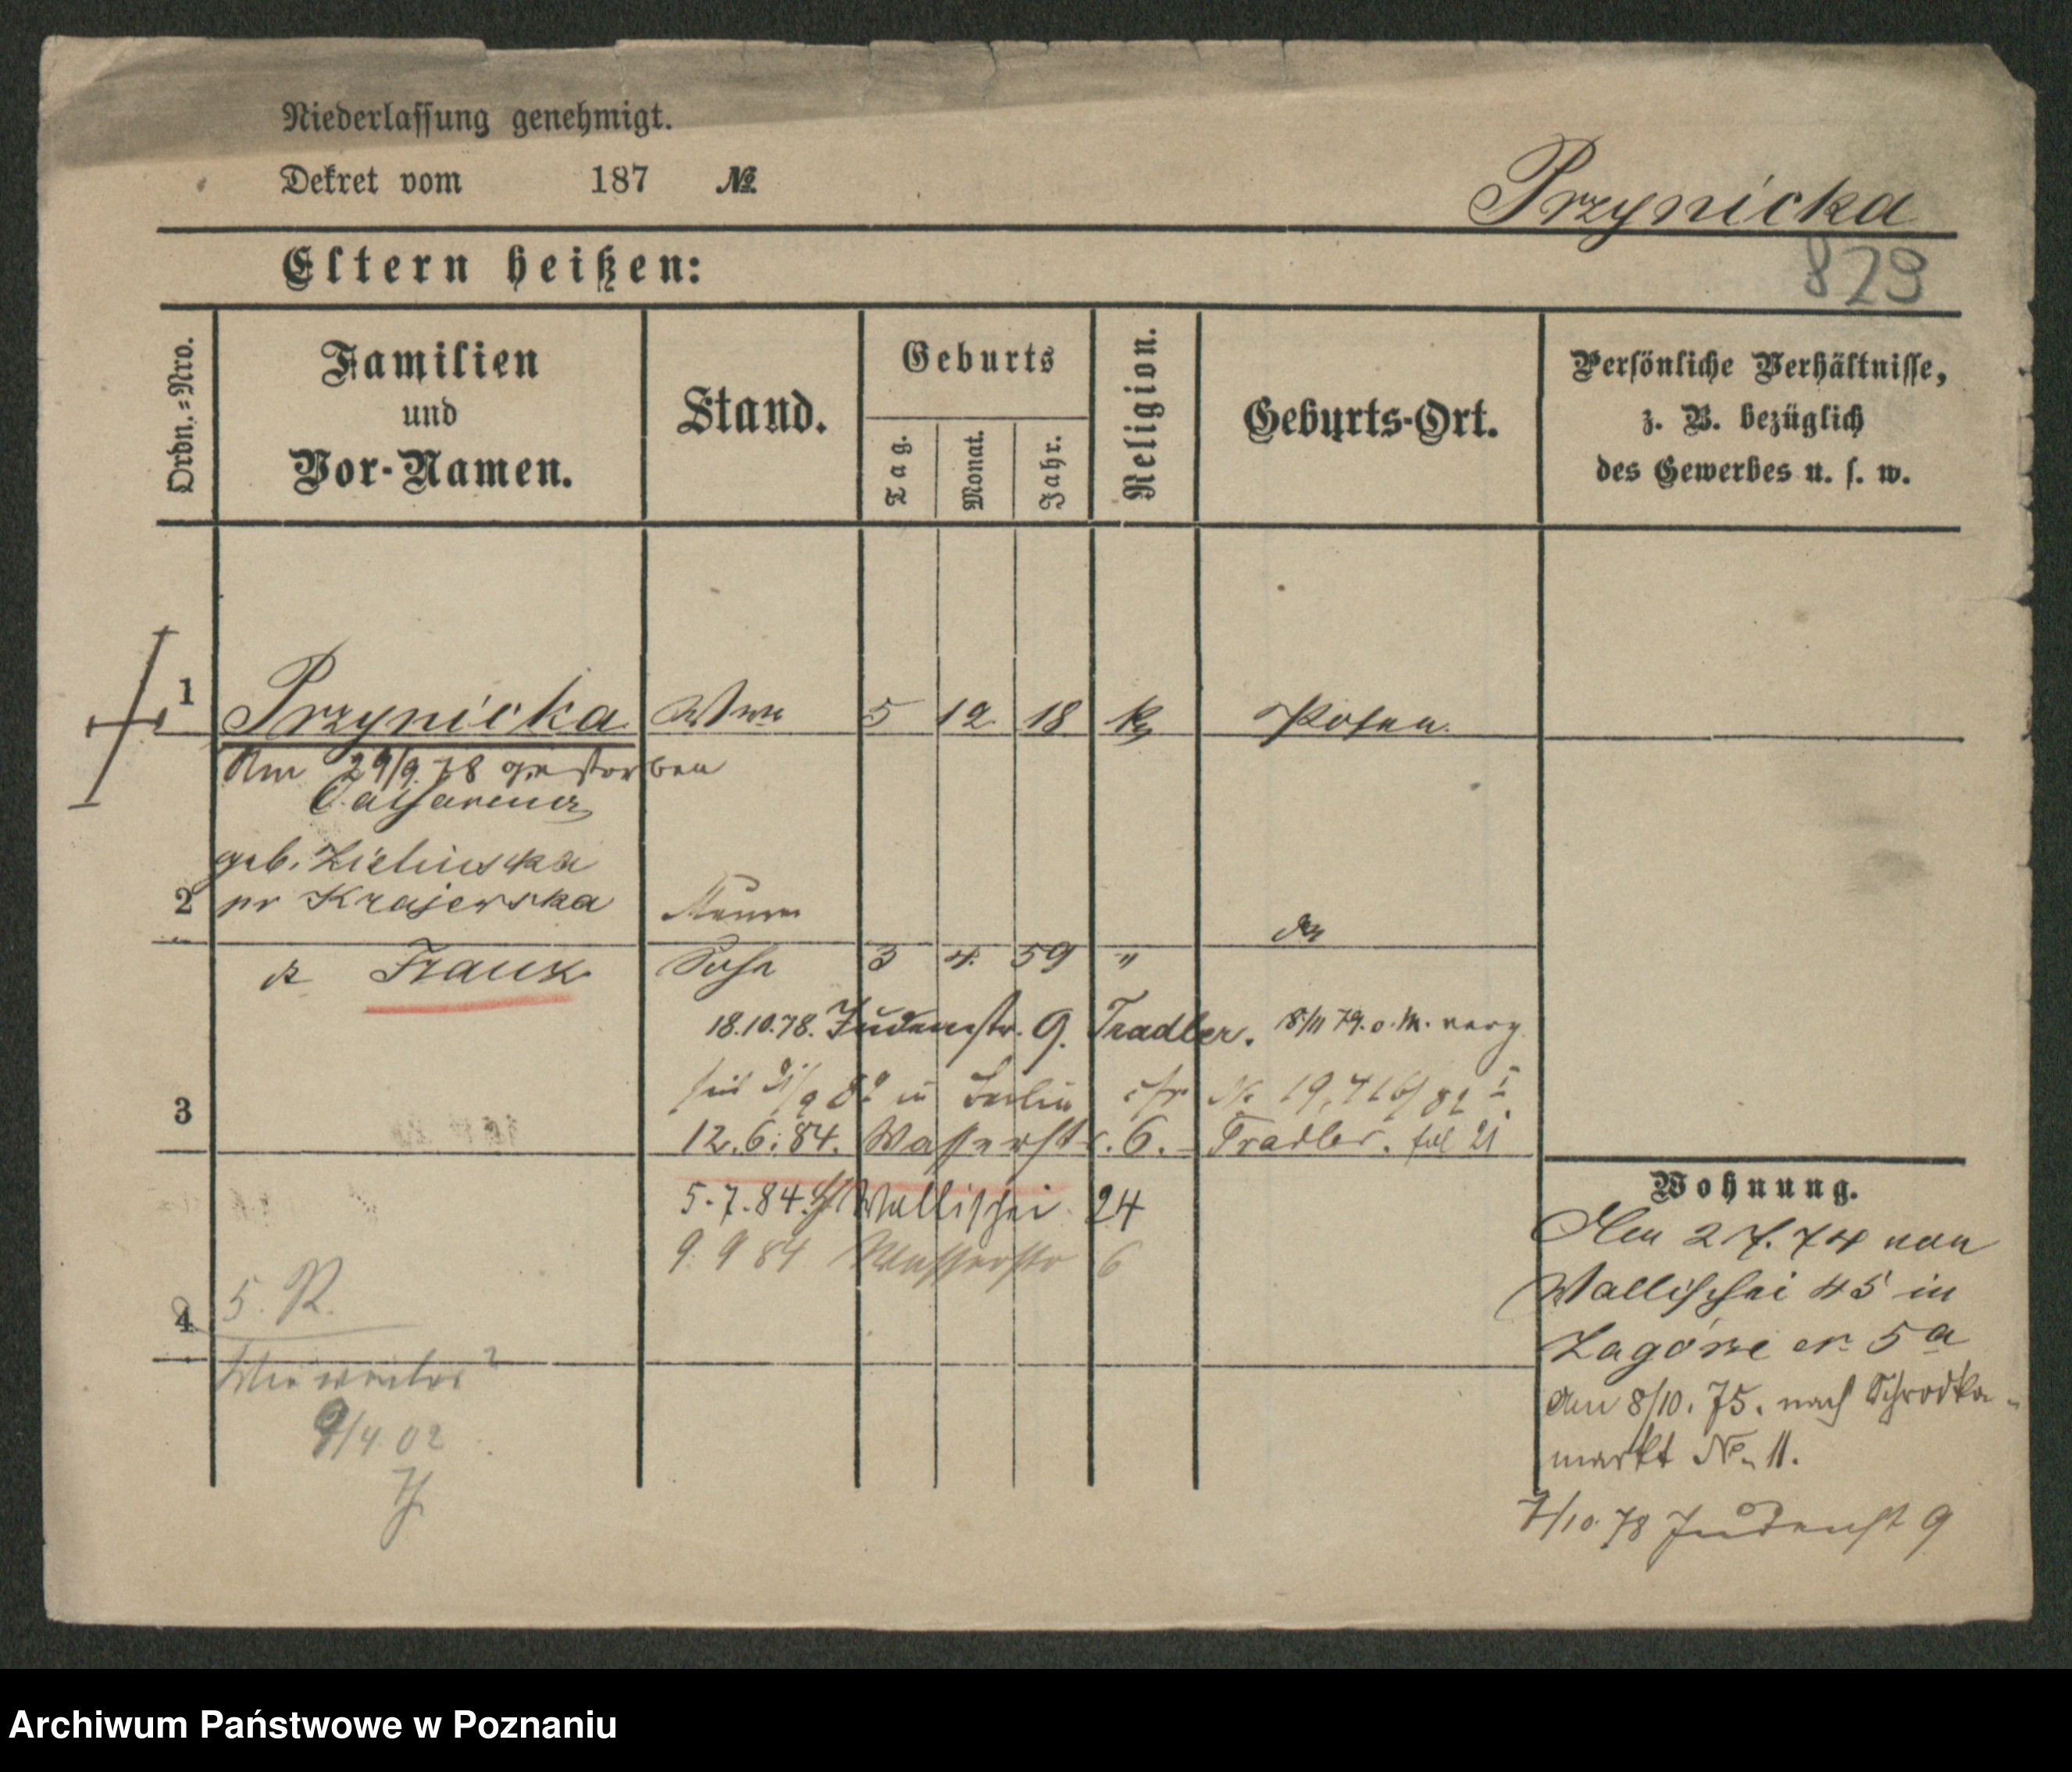 Niederlassung genehmigt.
Dekret vom 187 №
Przynicka
Eltern heißen:
829
Ordn.=Nro.
Familien
und
Vor-Namen.
Stand.
Geburts
Tag.
Monat.
Jahr.
Religion.
Geburts-Ort.
Persönliche Verhältnisse,
z. B. bezüglich
des Gewerbes u. s. w.
1 Przynicka Wwe 5 12 18 k Posen.
Am 29/9 78 gestorben
Catharina
geb. Zielinska
2 pr Krajewska
Franz Sohn 3 4. 59 "
18.10.78. Judenstr. 9. Tradler.
in Berlin cfr № 19,716/82 I
3
12.6.84. Wasserstr. 6. Tradler.
5.7.84. Wallischei 24
9 9 84 Wasserstr 6
4
5. R.
9/4 02
Wohnung.
Am 2 7. 74 von
Wallischei 45 in
Zagórze № 5a
Am 8/10. 75. nach Schrodka-
markt № 11.
7/10 78 Judenst 9
Archiwum Państwowe w Poznaniu